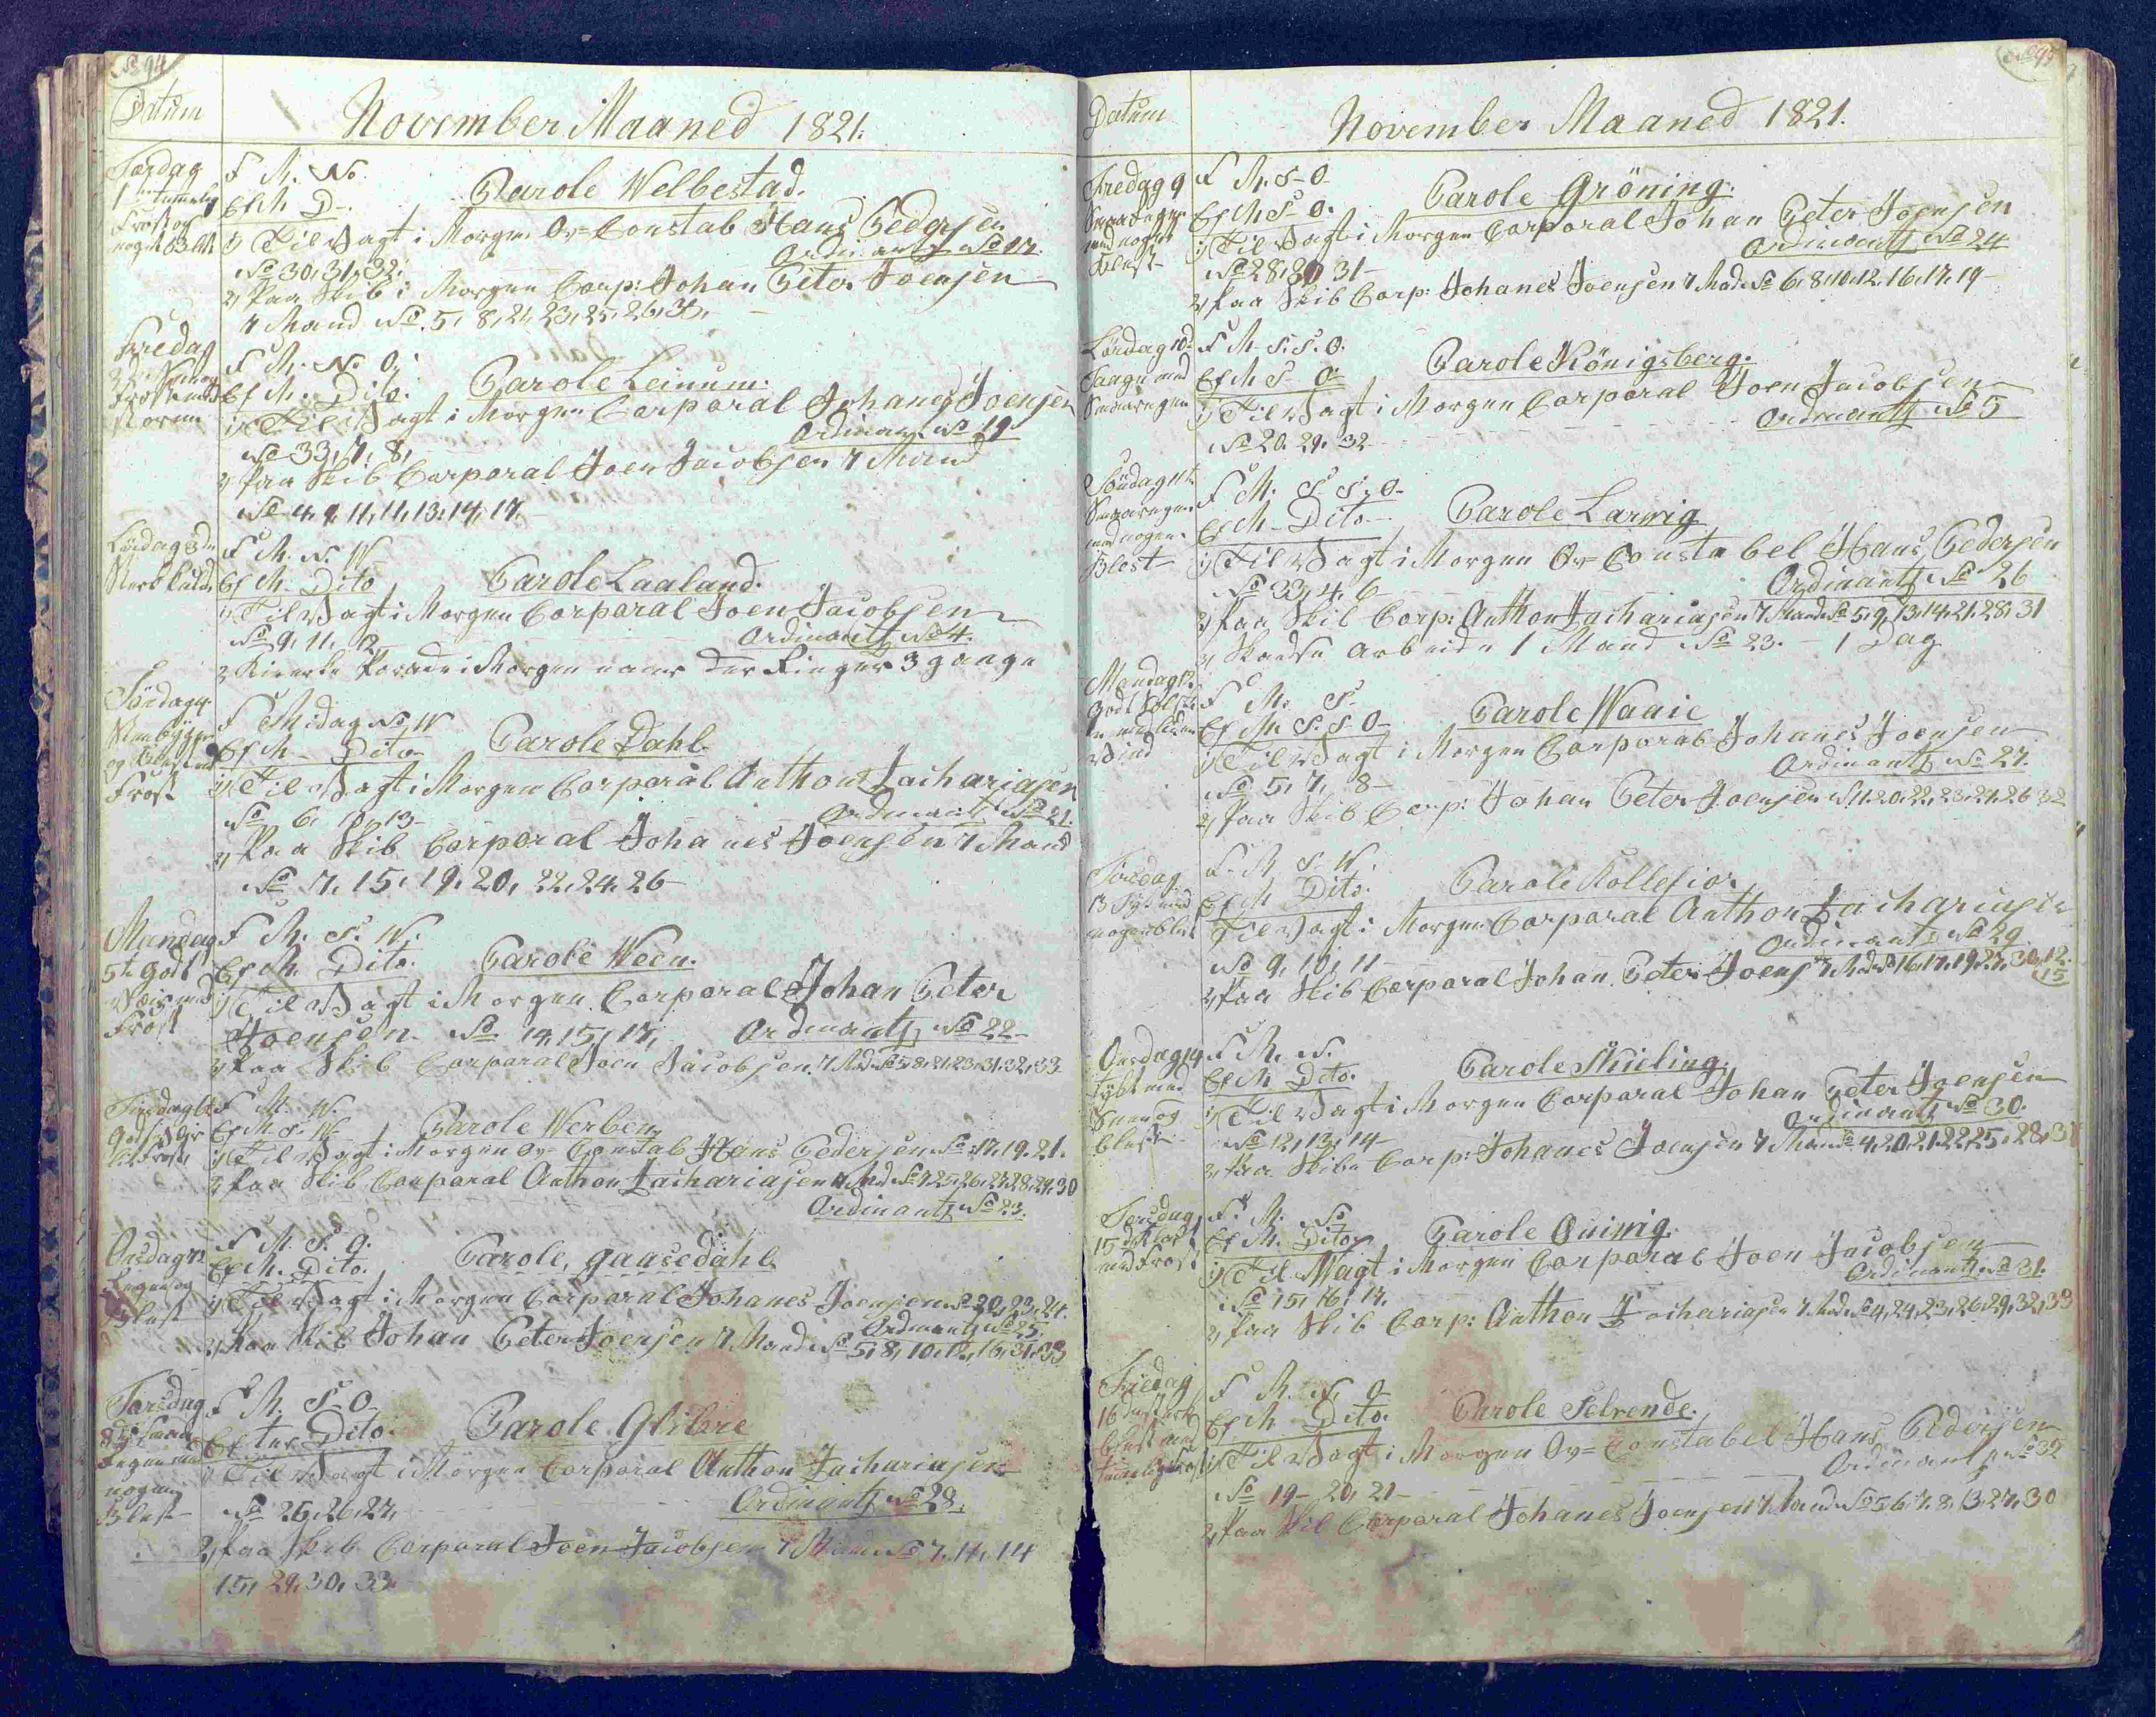 No 94
Datum
November Maaned 1821.
Torsdag
1ste temmelig
Frost og
noget Blæst
F M. No.
Ef M D-.
Parole Welbestad.
1) Til Vagt i Morgen Ov= Constab Hans Pedersen
Ordinantz No 17.
No 30, 31, 32.
2) Paa Skib i Morgen Corp: Johan Peter Joensen
7 Mand No. 5, 8, 21, 23, 25, 26, 31,
Fredag
2den
Frost med
storm
F M. No O.
Ef M. Dito.
Parole Leinum.
1) Til Vagt i Morgen Corporal Johanes Joensen
Ordinant. No 19
No 33, 7, 8,
2) Paa Skib Corporal Joen Jacobsen 7 Mand
No 4, 9, 11, 11, 13, 14, 17.
Løndag 3die
Sterk Kulde
F M. N. W
Ef M. Dito
Parole Laaland.
1) Til Vagt i Morgen Corporal Joen Jacobsen
No 9, 11, 12
Ordinantz No 4.
2 Kierke Parade i Morgen naar der Ringes 3 gange
Søndag 4.
og Blæst med
Frost
F Midag No W
Ef M - Dito
Parole Dahl.
1) Til Vagt i Morgen Corporal Anthon Zachariasen
No 6, 10, 13-
Ordinantz No 21.
2) Paa Skib Corporal Johanes Joensen 7 Mand
No 7, 15, 19, 20, 22, 24, 26
Mandag
5te godt
Veir med
Frost
F M. S. W.
Ef M. Dito.
Parole Ween.
1) Til Vagt i Morgen Corporal Johan Peter
Joensen No 14, 15, 17, Ordinantz No 22
2) Paa Skib Corporal Joen Jacobsen 7 Md No 5, 8, 21, 23, 31, 32, 33
Tirsdag 6te
godt Veir
lit Frost
F M. W.
Ef M S. W
Parole Werben
1) Til Vagt i Morgen Ov- Constab Hans Pedersen No 17, 19. 21.
2) Paa Skib Corporal Anthon Zachariasen 7 Md No 9, 25, 26, 27, 28, 29, 30
Ordinantz No 23.
Onsdag 7de
Regen og
Blæst
F M. S. O.
Ef M. Dito.
Parole, gaasedahl
1) Til Vagt i Morgen Corporal Johanes Joensen No 20, 23, 24.
Ordinantz No 25.
2) Paa Skib Johan Peter Joensen 7 Mand No 5, 8, 10, 12, 16, 31, 33
Torsdag
8de Smaa
Regen med
nogen
Blæst
F M. S-O
Efter Dito.
Parole Glibre
1) Til Vagt i Morgen Corporal Anthon Zachariasen
No 25, 26, 27,
Ordinantz No 28.
2) Paa Skib Corporal Joen Jacobsen 7 Mand No 7, 11, 14
15, 29, 30, 33.
Datum
November Maaned 1821.
Fredag 9
Smaa Regen
med noget
Blæst
F M. S-O
Ef M S-O.
Parole Gröning.
1) Til Vagt i Morgen Corporal Johan Peter Joensen
Ordinantz No 24
No 28, 30, 31-
2) Paa Skib Corp: Johanes Joensen 7 Md. No 6, 8, 10, 12, 16, 17, 19
Lørdag 10de
Taage med
Smaaregen
F M. S. S. O.
Ef M S- O.
Parole Königsberg.
1) Til Vagt i Morgen Corporal Joen Jacobsen
Ordinantz No 5
No 20. 29. 32
Søndag 11te
Smaaregen
med nogen
Blæst
F M. S S. O-
Ef M - Dito.
Parole Larwig
1) Til Vagt i Morgen Ov= Constabel Hans Pedersen
No 33, 4, 6
Ordinantz No 26
2) Paa Skib Corp: Anthon Zachariasen 7 Mand No 5, 9, 13, 14, 21, 28, 31
3) Skandse arbeide 1 Mand No 23. - 1 Dag
Mandag 12.
Vind
F M. S-
Ef M S. S O-
Parole Waaie
1) Til Vagt i Morgen Corporal Johanes Joensen
Ordinantz No 27.
No 5, 7, 8-
2) Paa Skib Corp: Johan Peter Joensen No 11, 20, 22, 23, 24, 26 32
Tirsdag
13 Tyk med
nogen blæst
F. M S- W.
Ef M Dito.
Parole Kollefior
Til Vagt i Morgen Corporal Anthon Zachariasen
Ordinantz No 29
No 9, 10, 11
2) Paa Skib Corporal Johan Peter Joens 7 Md No 16, 17, 19, 27, 30, 12.
15
Onsdag 14
Tykt med
Snee og
blæst
F M. N.
Ef M Dito.
Parole Skieling.
1) Til Vagt i Morgen Corporal Johan Peter Joensen
Ordinantz No 30.
No 12, 13, 14
2) Paa Skibe Corp: Johanes Joensen 7 Mand 4, 20, 21, 22, 25, 28, 31
Torsdag
15 de blæst
med Frost
F. M. No
Ef M. Dito
Parole Quiwig.
1) Til Wagt i Morgen Corporal Joen Jacobsen
Ordinantz No 31.
No 15, 16, 17.
2) Paa Skib Corp: Anthon Zachariasen 7 Md No 4, 24, 23, 26, 29, 32, 33
Fredag
16 de sterk
blæst med
temmelig Frost
F M. N. O
Ef M Dito.
Parole Selvende.
1) Til Vagt i Morgen Ov= Constabel Hans Pedersen
Ordinantz No 32
No 19- 20, 21-
2) Paa Skib Corporal Johanes Joensen 7 Mand No 5, 6, 7, 8, 13, 27, 30